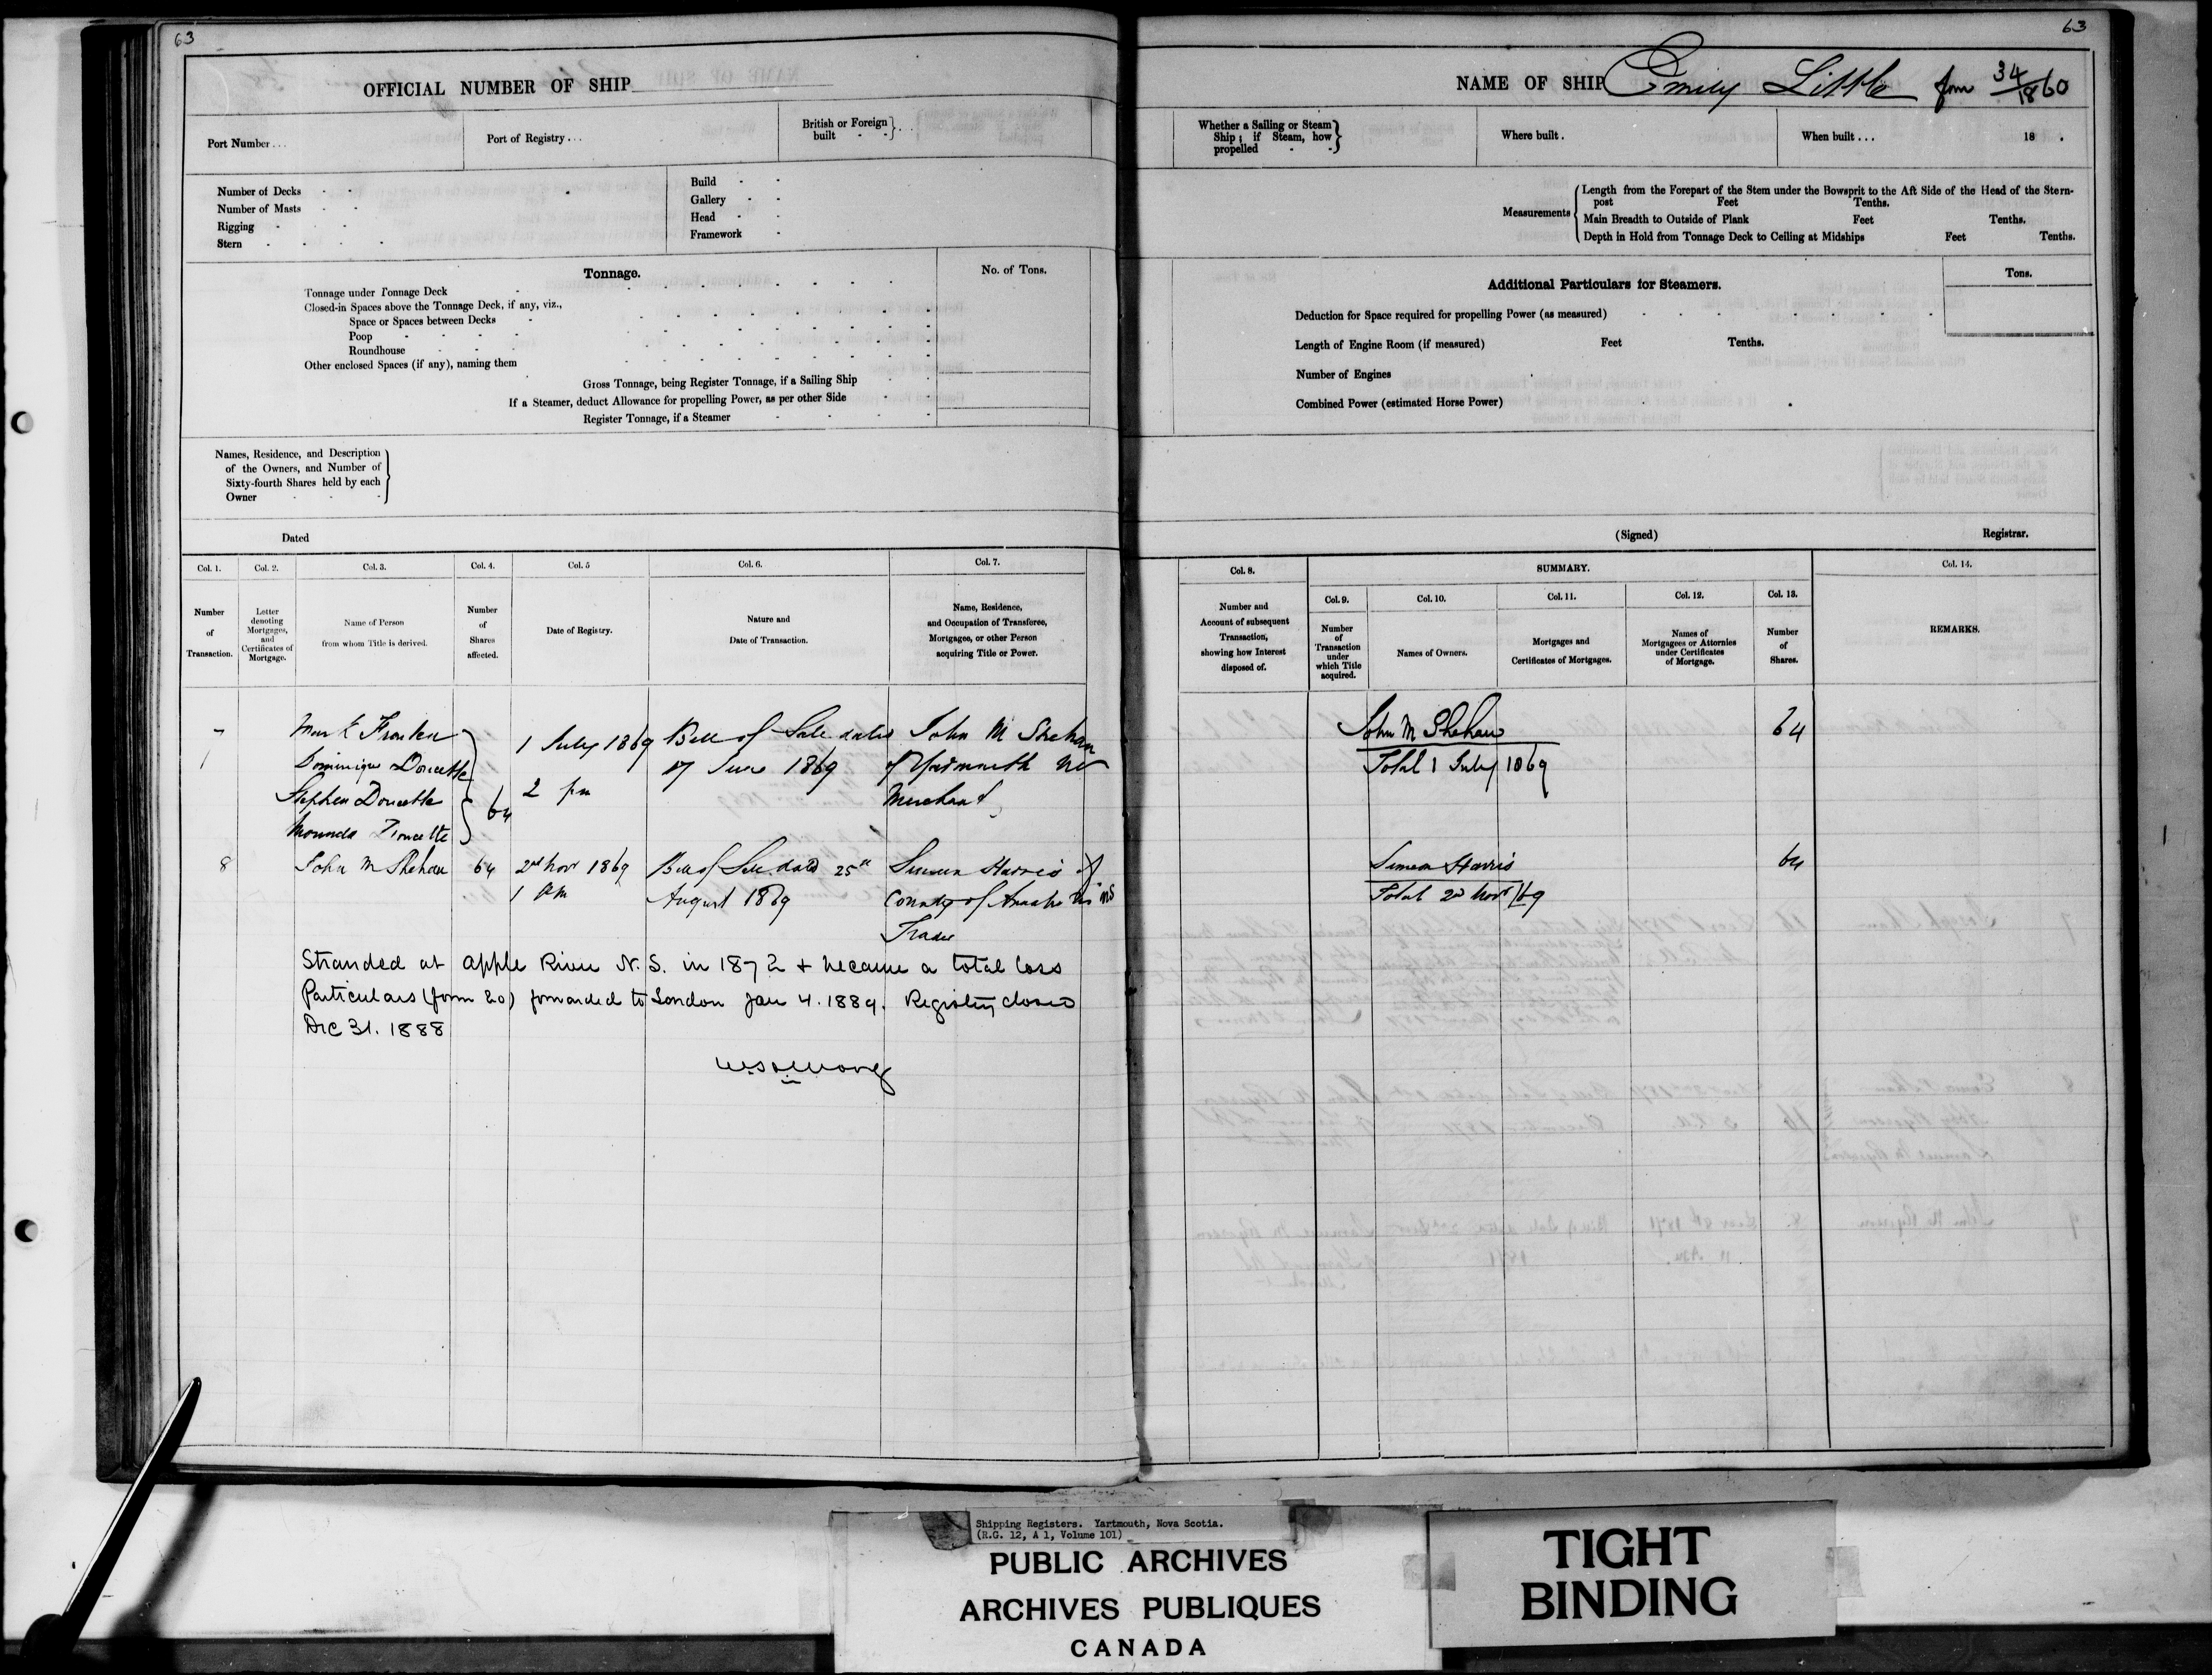 63
OFFICIAL NUMBER OF SHIP
Port Number...
Port of Registry...
British or Foreign built
Number of Decks
Number of Masts
Rigging
Stern
Build
Gallery
Head
Framework
Tonnage.
No. of Tons.
Tonnage under Tonnage Deck
Closed-in Spaces above the Tonnage Deck, if any, viz.,
Space or Spaces between Decks
Poop
Roundhouse
Other enclosed Spaces (if any), naming them
Gross Tonnage, being Register Tonnage, if a Sailing Ship
If a Steamer, deduct Allowance for propelling Power, as per other Side
Register Tonnage, if a Steamer
Names, Residence, and Description
of the Owners, and Number of
Sixty-fourth Shares held by each
Owner
Dated
Col. 1.
Col. 2.
Col. 3.
Col. 4.
Col. 5
Col. 6.
Col. 7.
Number
of
Transaction.
Letter
denoting
Mortgages,
and
Certificates of
Mortgage.
Name of Person
from whom Title is derived.
Number
of
Shares
affected.
Date of Registry.
Nature and
Date of Transaction.
Name, Residence,
and Occupation of Transferee,
Mortgagee, or other Person
acquiring Title or Power.
7
Mark
Dominique Doucette
Stephen Doucette
Doucette
64
1 July 1869
2 pm
Bill of Sale dated
17 June 1869
John M Shehan
of Yarmouth NS
Merchant
8
John M Shehan
64
2nd Nov 1869
1 pm
Bill of Sale dated 25th
August 1869
Simeon Harris of
County of Annapolis NS
Trader
Stranded at Apple River N.S. in 1872 + became a total loss
Particulars (form 20) forwarded to London Jan 4. 1889. Registry closed
Dec 31. 1888
63
NAME OF SHIP Emily Little from 34/1860
Whether a Sailing or Steam
Ship; if Steam, how
propelled
Where built.
When built...
18 .
Measurements
Length from the Forepart of the Stem under the Bowsprit to the Aft Side of the Head of the Stern-
post Feet Tenths.
Main Breadth to Outside of Plank Feet Tenths.
Depth in Hold from Tonnage Deck to Ceiling at Midships Feet Tenths.
Additional Particulars for Steamers.
Tons.
Deduction for Space required for propelling Power (as measured)
Length of Engine Room (if measured) Feet Tenths.
Number of Engines
Combined Power (estimated Horse Power)
(Signed)
Registrar.
Col. 8.
SUMMARY.
Col. 14.
Col. 9.
Col. 10.
Col. 11.
Col. 12.
Col. 13.
Number and
Account of subsequent
Transaction,
showing how Interest
disposed of.
Number
of
Transaction
under
which Title
acquired.
Names of Owners.
Mortgages and
Certificates of Mortgages.
Names of
Mortgagees or Attornies
under Certificates
of Mortgage.
Number
of
Shares.
REMARKS.
John M Shehan
64
Total 1 July 1869
Simeon Harris
64
Total 2nd Nov /69
Shipping Registers. Yartmouth, Nova Scotia.
(R.G. 12, A 1, Volume 101)
PUBLIC ARCHIVES
ARCHIVES PUBLIQUES
CANADA
TIGHT
BINDING